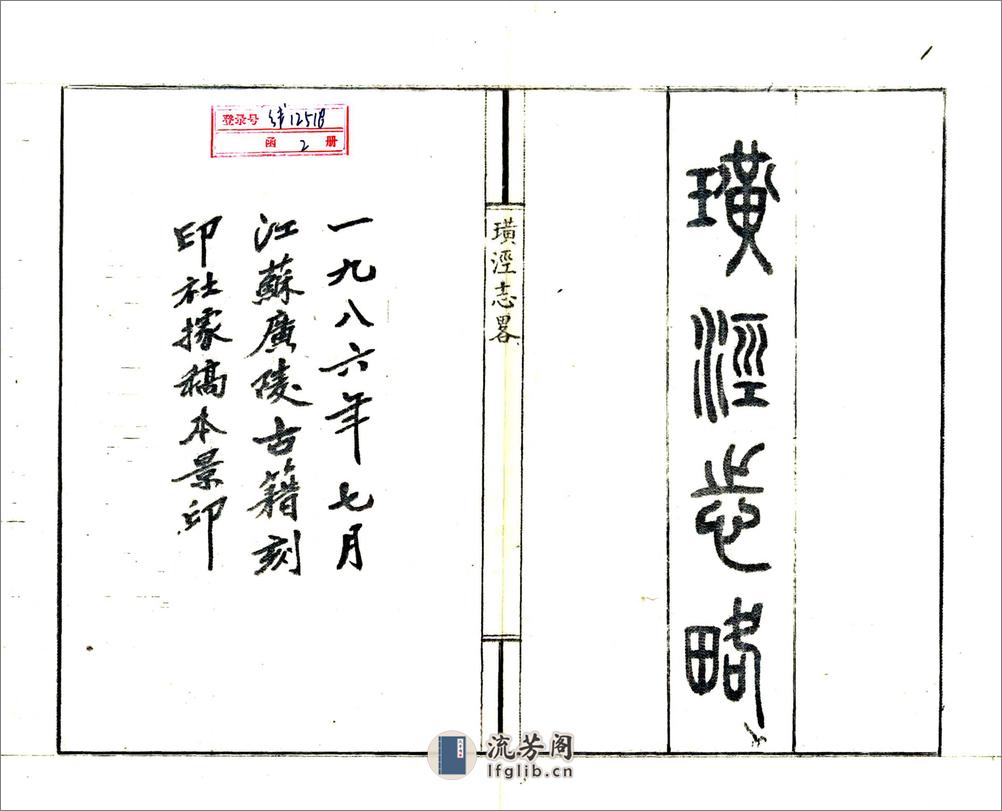 璜涇志略
璜涇志畧
一九八六年七月
江蘇廣陵古籍刻
印社據稿本景印
登录号 线12518
函 2 册
流芳阁
lfglib.cn